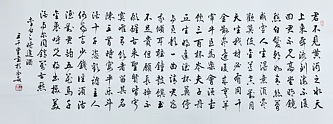 君不見黃河之水天
上來奔流到海不復
回君不見高堂明鏡
悲白髮朝如青絲暮
成雪人生得意須盡
歡莫使金樽空對月
天生我材必有用千
金散盡還復來烹羊
宰牛且為樂會須一
飲三百杯岑夫子丹
丘生將進酒杯莫停
與君歌一曲請君為我
傾耳聽鐘鼓饌玉
不足貴但願長醉不
願醒古來聖賢皆寂
寞惟有飲者留其名
陳王昔時宴平樂斗
酒十千恣歡謔主人
何為言少錢徑須沽
取對君酌五花馬千
金裘呼兒將出換美
酒與爾同銷萬古愁
李白詩將進酒